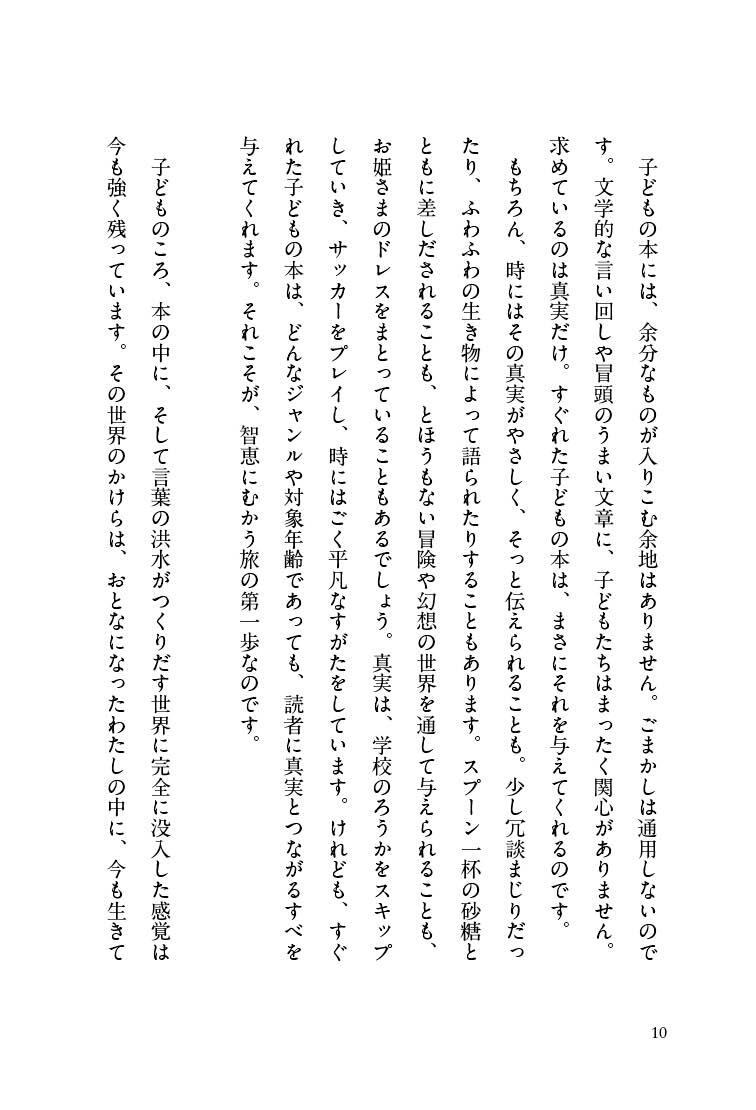 子どもの本には、余分なものが入りこむ余地はありません。ごまかしは通用しないので
す。文学的な言い回しや冒頭のうまい文章に、子どもたちはまったく関心がありません。
求めているのは真実だけ。すぐれた子どもの本は、まさにそれを与えてくれるのです。
もちろん、時にはその真実がやさしく、そっと伝えられることも。少し冗談まじりだっ
たり、ふわふわの生き物によって語られたりすることもあります。スプーン一杯の砂糖と
ともに差しだされることも、とほうもない冒険や幻想の世界を通して与えられることも、
お姫さまのドレスをまとっていることもあるでしょう。真実は、学校のろうかをスキップ
していき、サッカーをプレイし、時にはごく平凡なすがたをしています。けれども、すぐ
れた子どもの本は、どんなジャンルや対象年齢であっても、読者に真実とつながるすべを
与えてくれます。それこそが、智恵にむかう旅の第一歩なのです。
子どものころ、本の中に、そして言葉の洪水がつくりだす世界に完全に没入した感覚は
今も強く残っています。その世界のかけらは、おとなになったわたしの中に、今も生きて
10